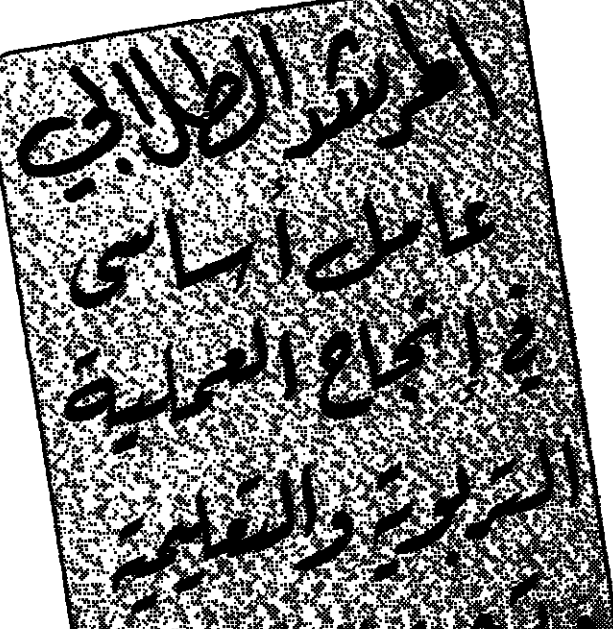 المرشد الطلابي
عامل أساسي
في إنجاح العملية
التربوية والتعليمية